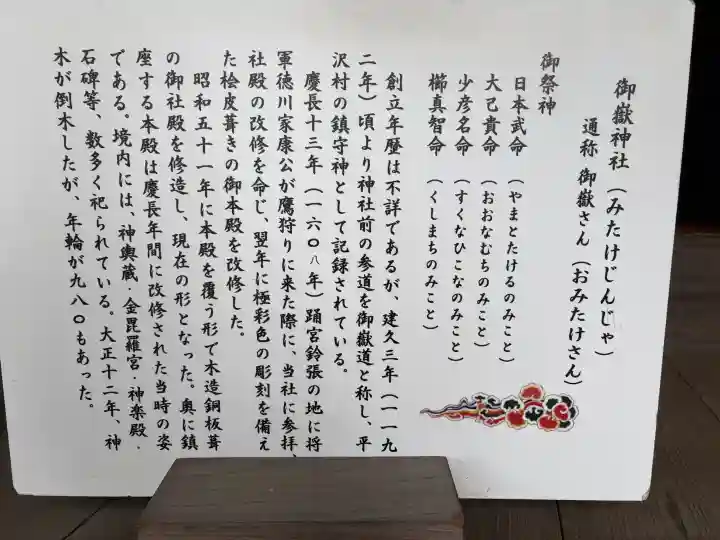 御嶽神社（みたけじんじゃ）
通称 御嶽さん（おみたけさん）
御祭神
日本武命（やまとたけるのみこと）
大己貴命（おおなむちのみこと）
少彦名命（すくなひこなのみこと）
櫛真智命（くしまちのみこと）
創立年暦は不詳であるが、建久三年（一一九
二年）頃より神社前の参道を御嶽道と称し、平
沢村の鎮守神として記録されている。
慶長十三年（一六〇八年）踊宮鈴張の地に将
軍徳川家康公が鷹狩りに来た際に、当社に参拝、
社殿の改修を命じ、翌年に極彩色の彫刻を備え
た桧皮葺きの御本殿を改修した。
昭和五十一年に本殿を覆う形で木造銅板葺
の御社殿を修造し、現在の形となった。奥に鎮
座する本殿は慶長年間に改修された当時の姿
である。境内には、神輿蔵・金毘羅宮・神楽殿・
石碑等、数多く祀られている。大正十二年、神
木が倒木したが、年輪が九八〇もあった。